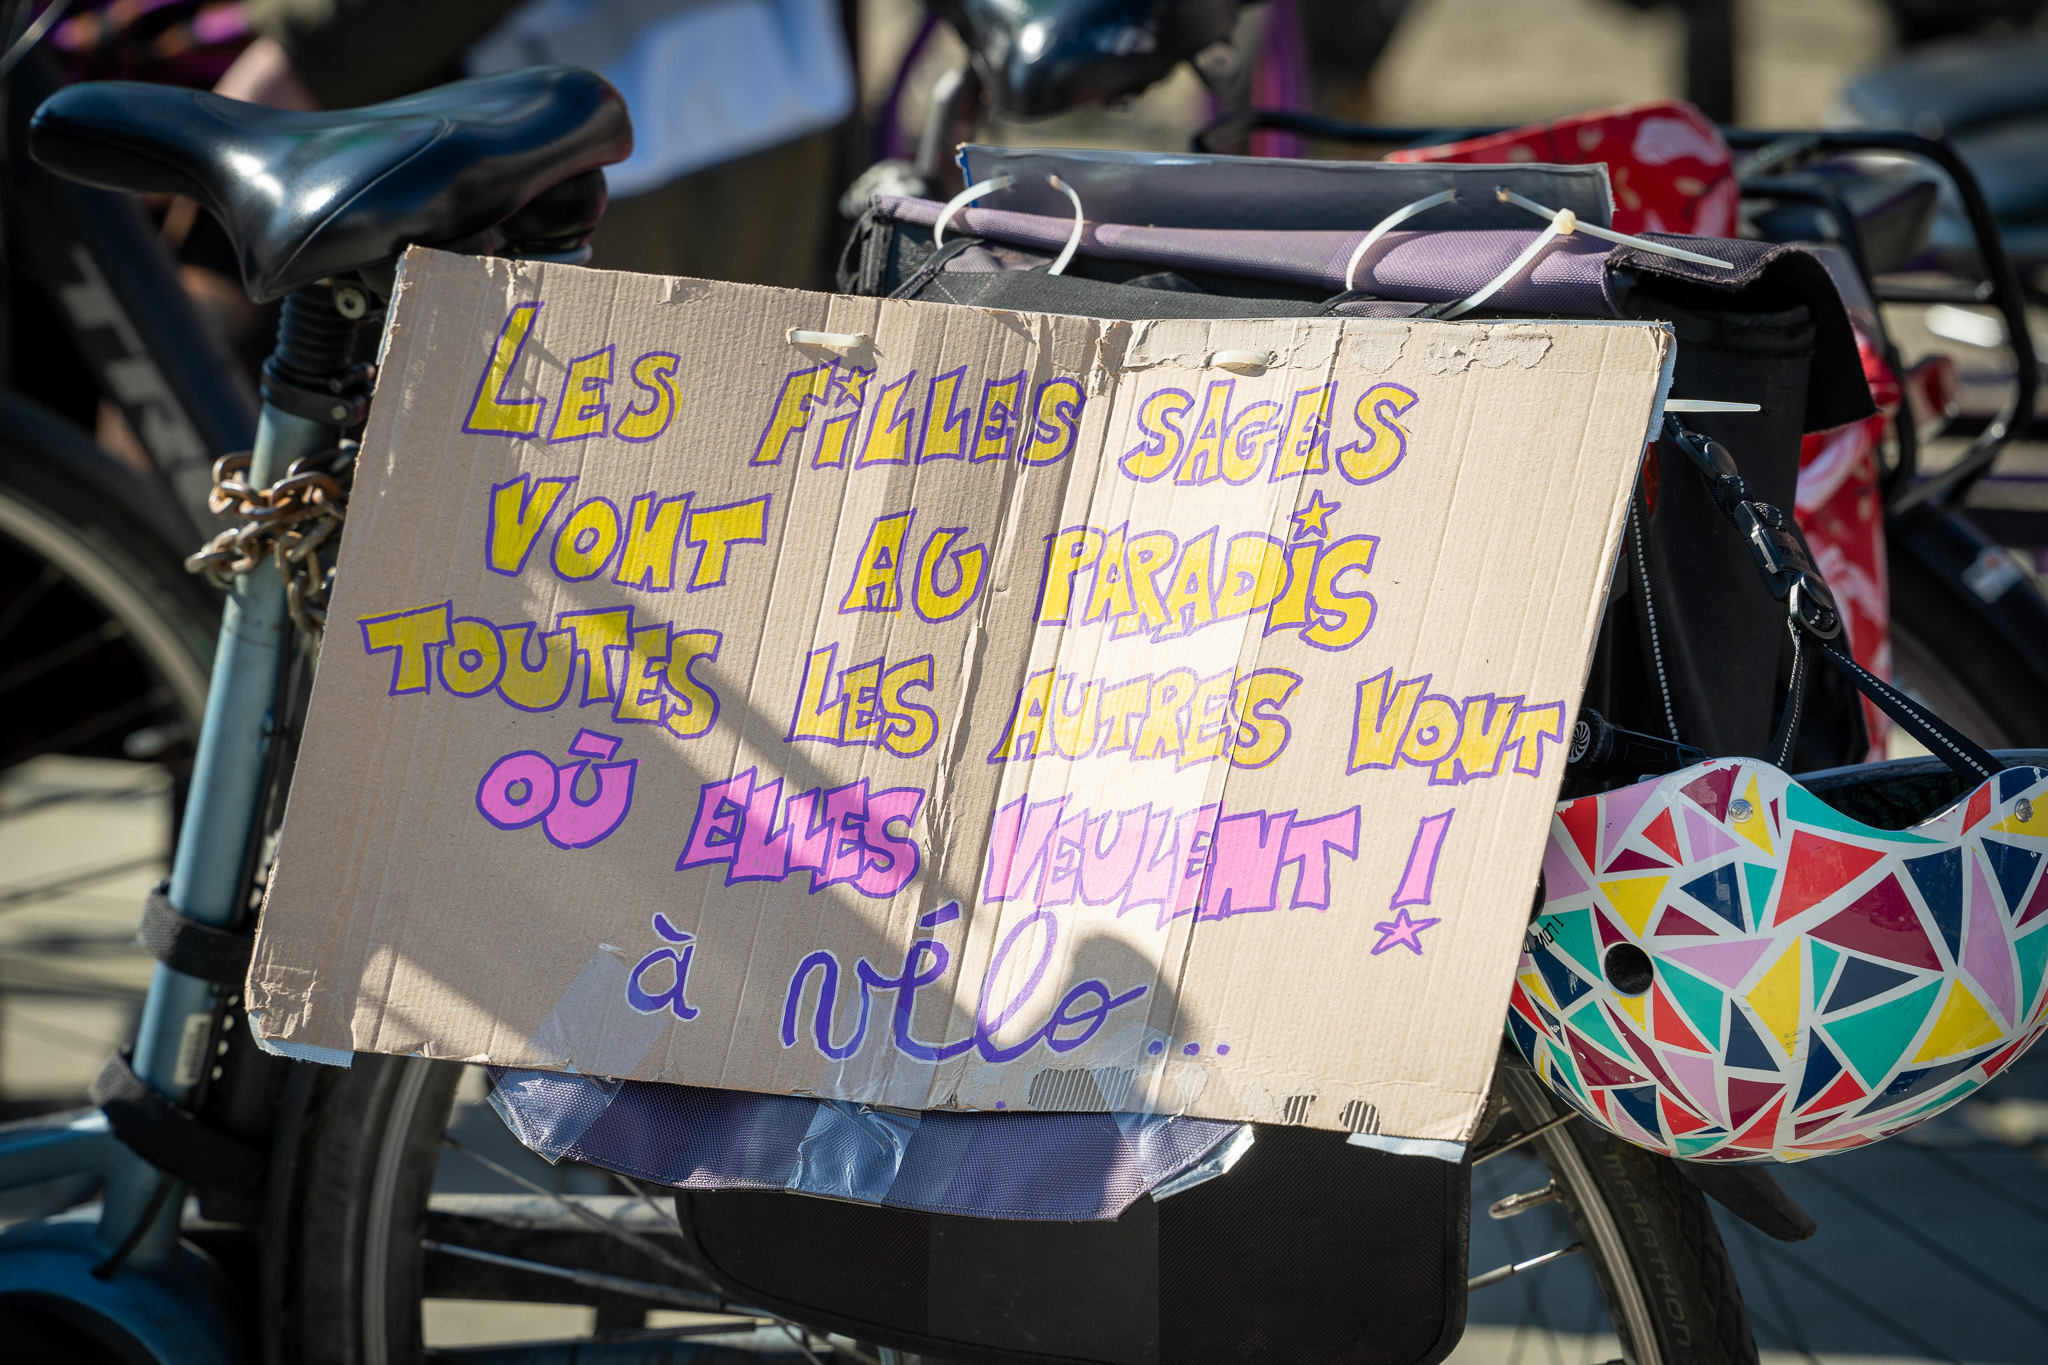 LES FiLLES SAGES
VONT AU PARADIS
TOUTES LES AUTRES VONT
OÙ ELLES VEULENT !
à vélo...
MARATHON